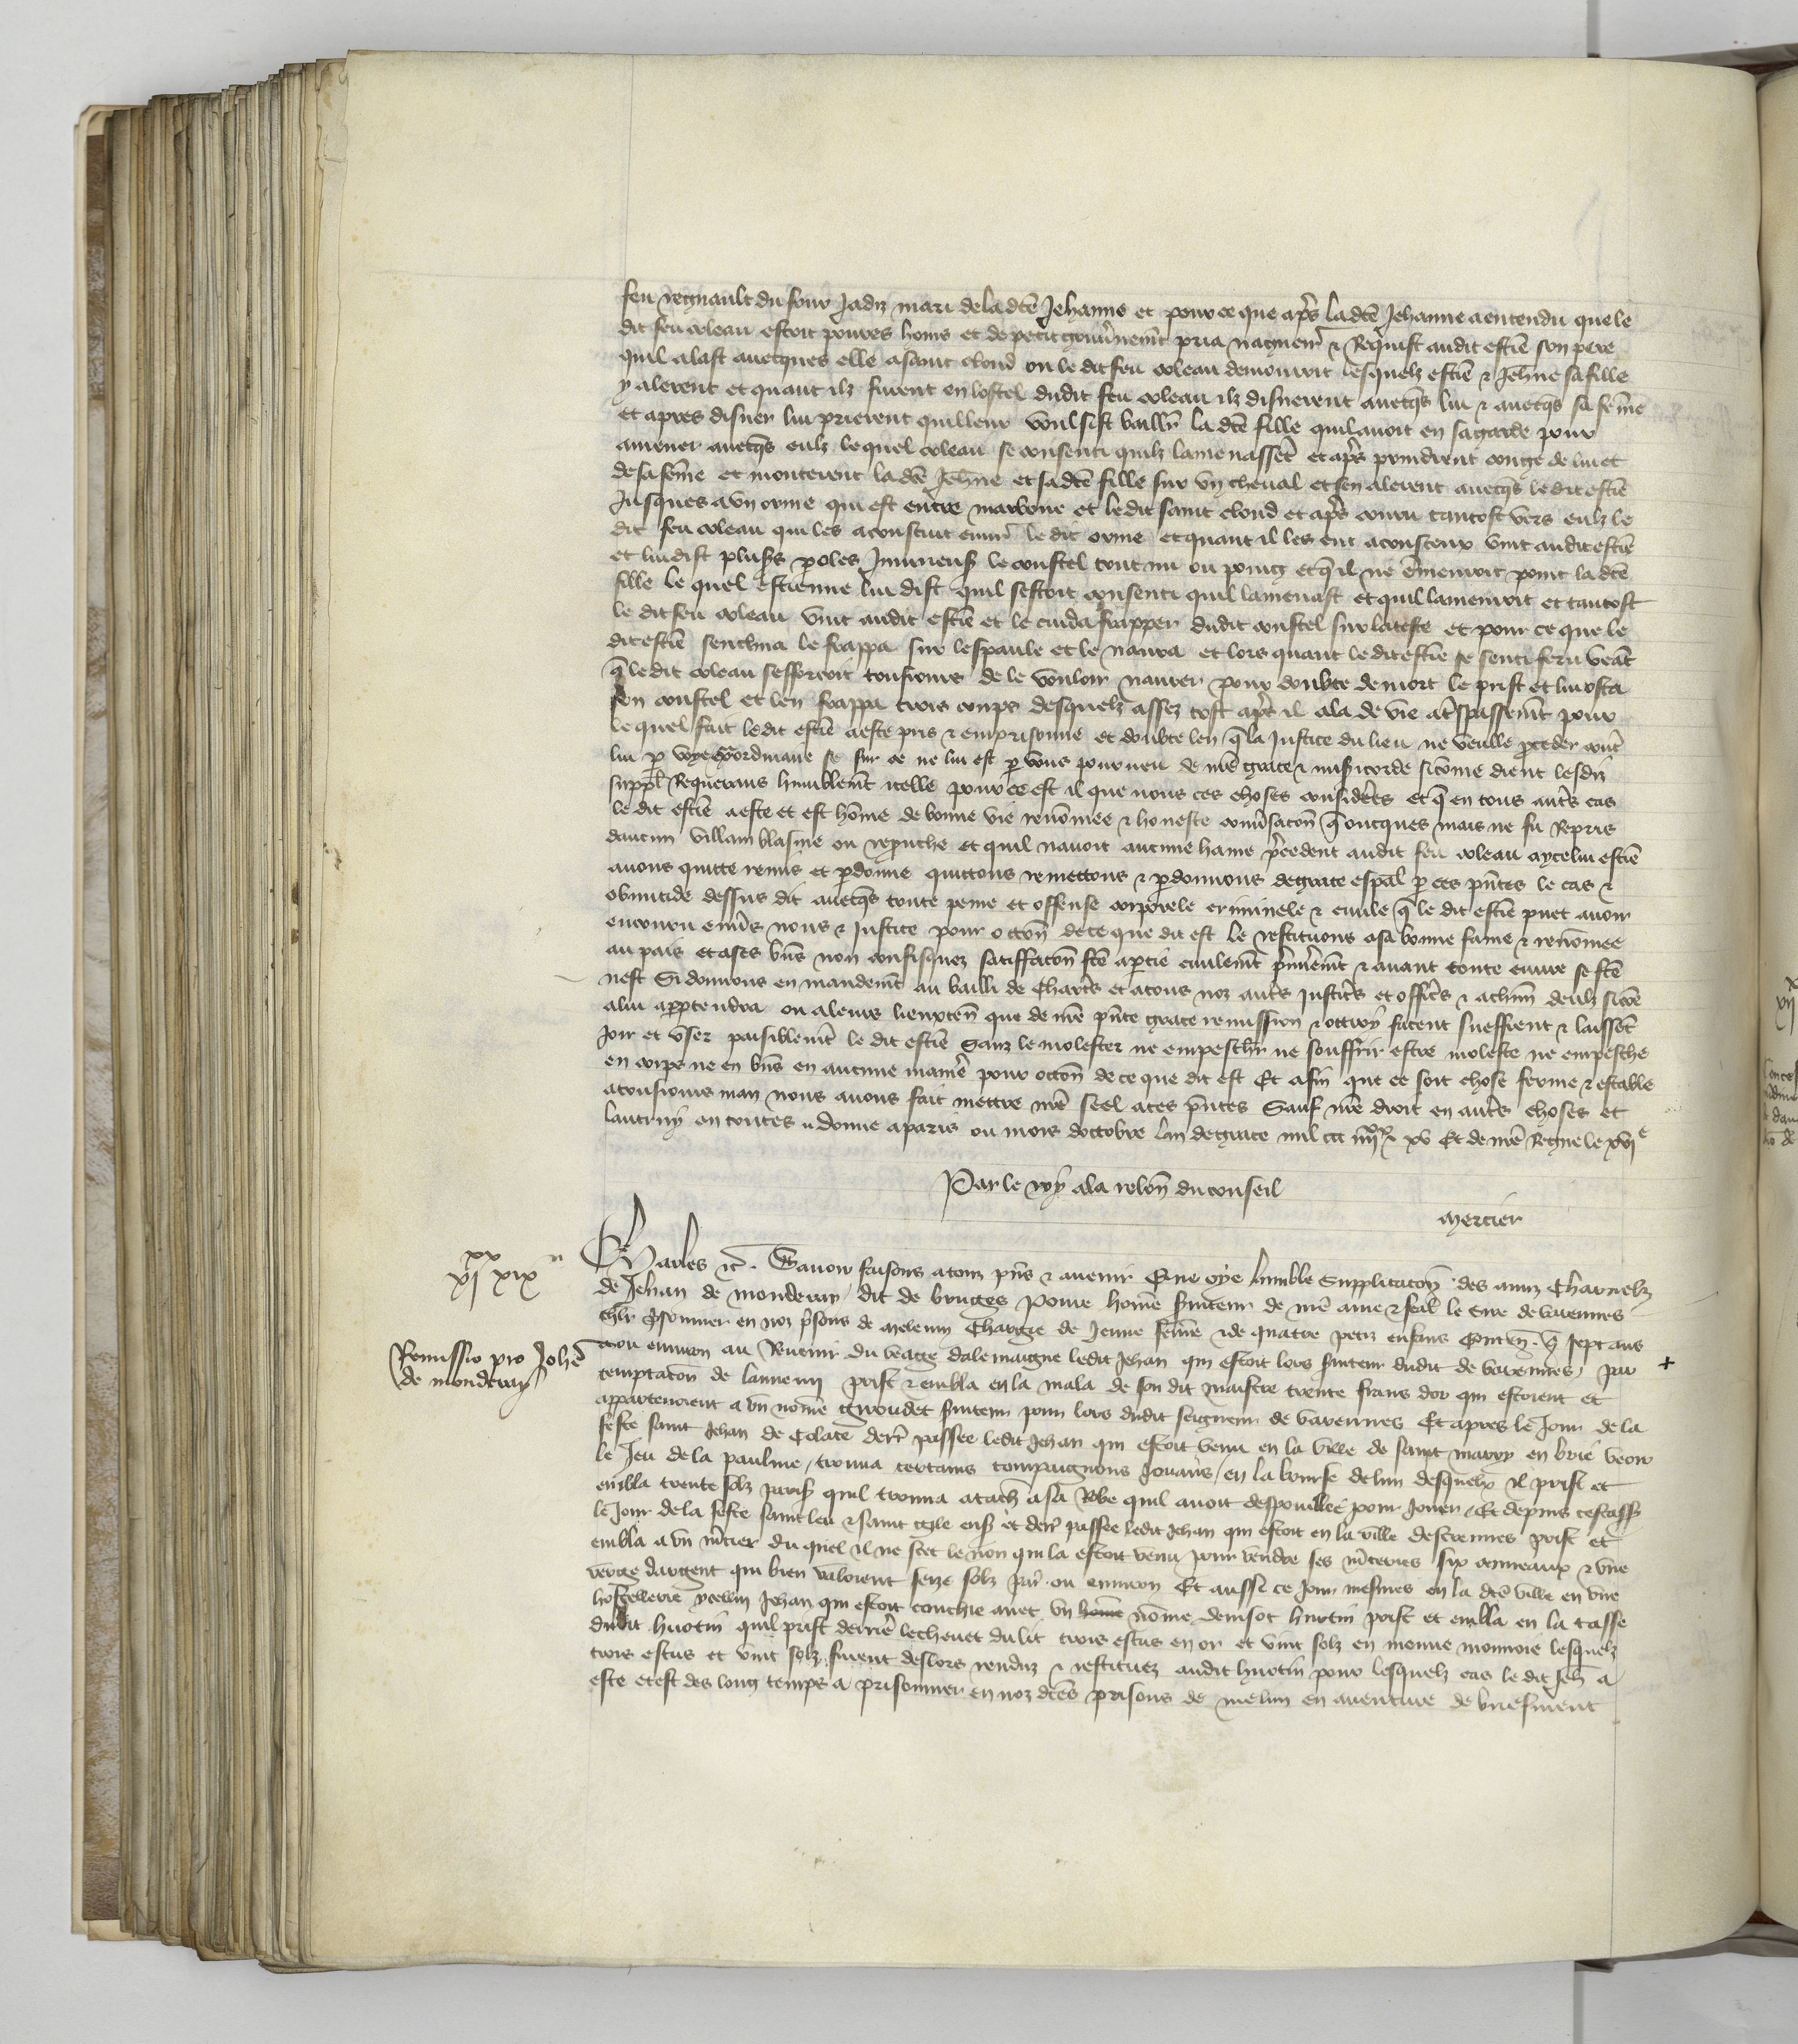 feu regnault du four Jadiz mari de la dcē Jehanne et pource que ap̄s la dcē Jehanne a entendu que le
dit feu coleau estoit poures homs et de petit gouūnemt̄ pria nagueir̄ & Requist audit estiē son pere
quil alast auecques elle a saint cloud ou le dit feu coleau demouroit lesquelz estiē & Jehn̄e sa fille
y alerent et quant ilz furent en lostel dudit feu coleau ilz disnerent auecq̄s lui & auecq̄s sa fem̄e
et apres disner lui prierent quilleur voulsist baillr̄ la dcē fille quil auoit en sa garde pour
amener auecq̄s eulz le quel coleau se consenti quilz lamenassēt et ap̄s prindrent congie de lui et
de sa fem̄e et monterent la dcē Jehn̄e et sa dcē fille sur vn cheual et sen alerent auecq̄s le dit estiē
Jusques a vn orme qui est entre et le dit saint cloud et ap̄s couru tantost vers eulz le
dit feu coleau qui les aconsuit enuir̄ le dit orme et quant il les eut aconsceuz vint audit estiē
et lui dist plus̄s p̄oles Iniurieuss le coustel tout nu ou poing et q̄ il ne ēmenroit point la dcē
fille le quel estienne lui dist quil sestoit consenti quil lamenast et quil lamenroit et tantost
le dit feu coleau vint audit estiē et le cuida frapper dudit coustel sur la teste et pour ce que le
dit estiē senclina le frappa sur lespaule et le naura et lors quant le dit estiē se senti feru veāt
q̄ le dit coleau sefforcoit tousiours de le vouloir naurer pour doubte de mort le prist et lui osta
son coustel et len frappa trois coups desquelz assez tost ap̄s il ala de vie a t̄spassemt̄ pour
le quel fait le dit estiē a este pris & emprisonne et doubte len q̄ la Justice du lieu ne veulle p̄ceder cont̄
lui p̄ voye extraordinaire se sur ce ne lui est p̄ vous pourueu de nr̄e grace & mis̄icorde sicōme dient lesdiz
suppl̄ Requerans humblemt̄ icelle pource est il que nous ces choses considēes et q̄ en tous aut̄s cas
le dit estiē a este et est hōme de bonne vie renōmee & honeste conūsacōn q̄ oncques mais ne fu Repris
daucun villain blasme ou reprouche et quil nauoit aucune haine p̄cedent audit feu coleau aycelui estiē
auons quitte remis et p̄donne quittons remettons & p̄donnons de grace esp̄al p̄ ces pn̄tes le cas &
dessus dit auecq̄s toute peine et offense corporele criminele & ciuile q̄ le dit estiē puet auoir
encouru enūs nous & Justice pour occōn de ce que dit est le restituons a sa bonne fame & renōmee
au pais et a ses bn̄s non confisquez satisffacōn fcē a p̄tie ciuilemt̄ p̄miēemt̄ & auant toute euure se fcē
nest Si donnons en mandemt̄ au bailli de Chart̄s et a tous noz aut̄s Justic̄s et offic̄s & a chūn deulz sicōe
a lui app̄tendra ou a leurs lieuxten̄ que de nr̄e pn̄te grace remission & ottroy facent sueffrent & laissēt
Joir et vser paisiblemt̄ le dit estiē sanz le molester ne empeschr̄ ne souffrir estre moleste ne empesche
en corps ne en bn̄s en aucune manie͂ pour occōn de ce que dit est Et afin que ce soit chose ferme & estable
a tousiours mais nous auons fait mettre nr̄e seel a ces pn̄tes Sauf nr̄e droit en aut̄s choses et
lautruy en toutes donne a paris ou mois doctobre lan de grace mil ccc iiijxx xv Et de nr̄e Regne le xvie
Par le roy a la relōn du conseil
mercier
xx
vj xix n
Charles &c. Sauoir faisons a touz pn̄s & auenir Que oye lumble Supplicacōn des amis Charnelz
de Jehan de monderay dit de bruges Poure home͂ s̄uiteur de nr̄e ame & feal le sire de varennes
chlr̄ p̄sonnier en noz p̄sons de meleun Chargie de Jeune fem̄e & de quatre petiz enfans Conten̄. q̄ sept ans
a ou enuiron au Reuenir du veaige dalemaigne ledit Jehan qui estoit lors s̄uiteur dudit de varennes, par +
Remissio pro Johē
de monderay
temptacōn de lannemi prist & embla en la mala de son dit maistre trente frans dor qui estoient et
appartenoient a vn nōme girondet s̄uiteur pour lors dudit seigneur de varennes Et apres le Jour de la
feste saint Jehan de Colacē derr̄ passee ledit Jehan qui estoit venu en la ville de saint marry en brie veoir
le Jeu de la paulme, trouua certains compaignons Jouan̄s, en la bourse de lun desquelx Il prist et
embla trente solz paris̄ quil trouua atach̄ a sa Robe quil auoit despouillee pour Jouer, Et depuis cestass
le Jour de la feste saint leu & saint gile ens̄ et derr̄ passee ledit Jehan qui estoit en la ville descrennes prist et
embla a vn m̄cier du quel il ne scet le nōn qui la estoit venu pour vendre ses m̄ceries six anneaux & vne
verge dargent qui bien valoient seze solz par̄ ou enuiron Et aussi ce Jour mesmes en la dcē ville en vne
hostellerie ycellui Jehan qui estoit couchie auec vn home nōme denisot huotin prist et embla en la tasse
dudit huotin quil prist derrie͂ le cheuet du lit trois escus en or et vint solz en menue monnoie lesquelz
trois escus et vint solz furent deslors renduz & restituez audit huotin pour lesquelz cas le dit Jeh̄ a
este et est des long temps a prisonnier en noz dcēs prisons de melun en auenture de briefment